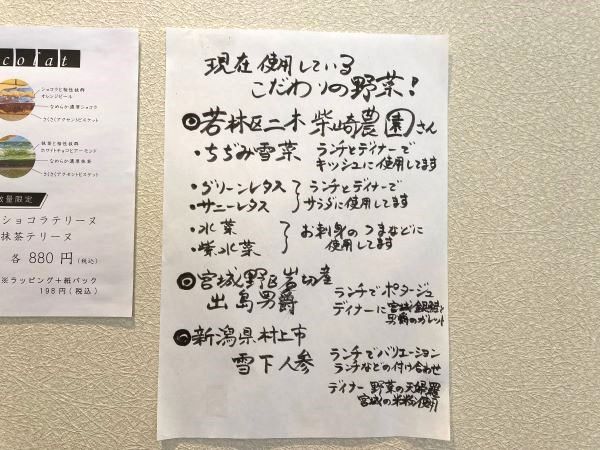 colat
ショコラと相性抜群
オレンジピール
なめらか濃厚ショコラ
さくさくアクセントビスケット
抹茶と相性抜群
ホワイトチョコとアーモンド
なめらか濃厚抹茶
さくさくアクセントビスケット
数量限定
ショコラテリーヌ
抹茶テリーヌ
各 880 円(税込)
※ラッピング+紙バック
198 円(税込)
現在使用している
こだわりの野菜!
◎若林区二木柴崎農園さん
・ちぢみ雪菜 ランチとディナーで
キッシュに使用してます
・グリーンレタス ランチとディナーで
・サニーレタス サラダに使用してます
・水菜 お刺身のつまなどに
・紫水菜 使用してます
◎宮城野区岩切産
出島男爵 ランチでポタージュ
ディナーに宮城銀鮭と
男爵のガレット
◎新潟県村上市
雪下人参 ランチでバリエーション
ランチなどの付け合わせ
ディナー 野菜の天婦羅
宮城の米粉使用